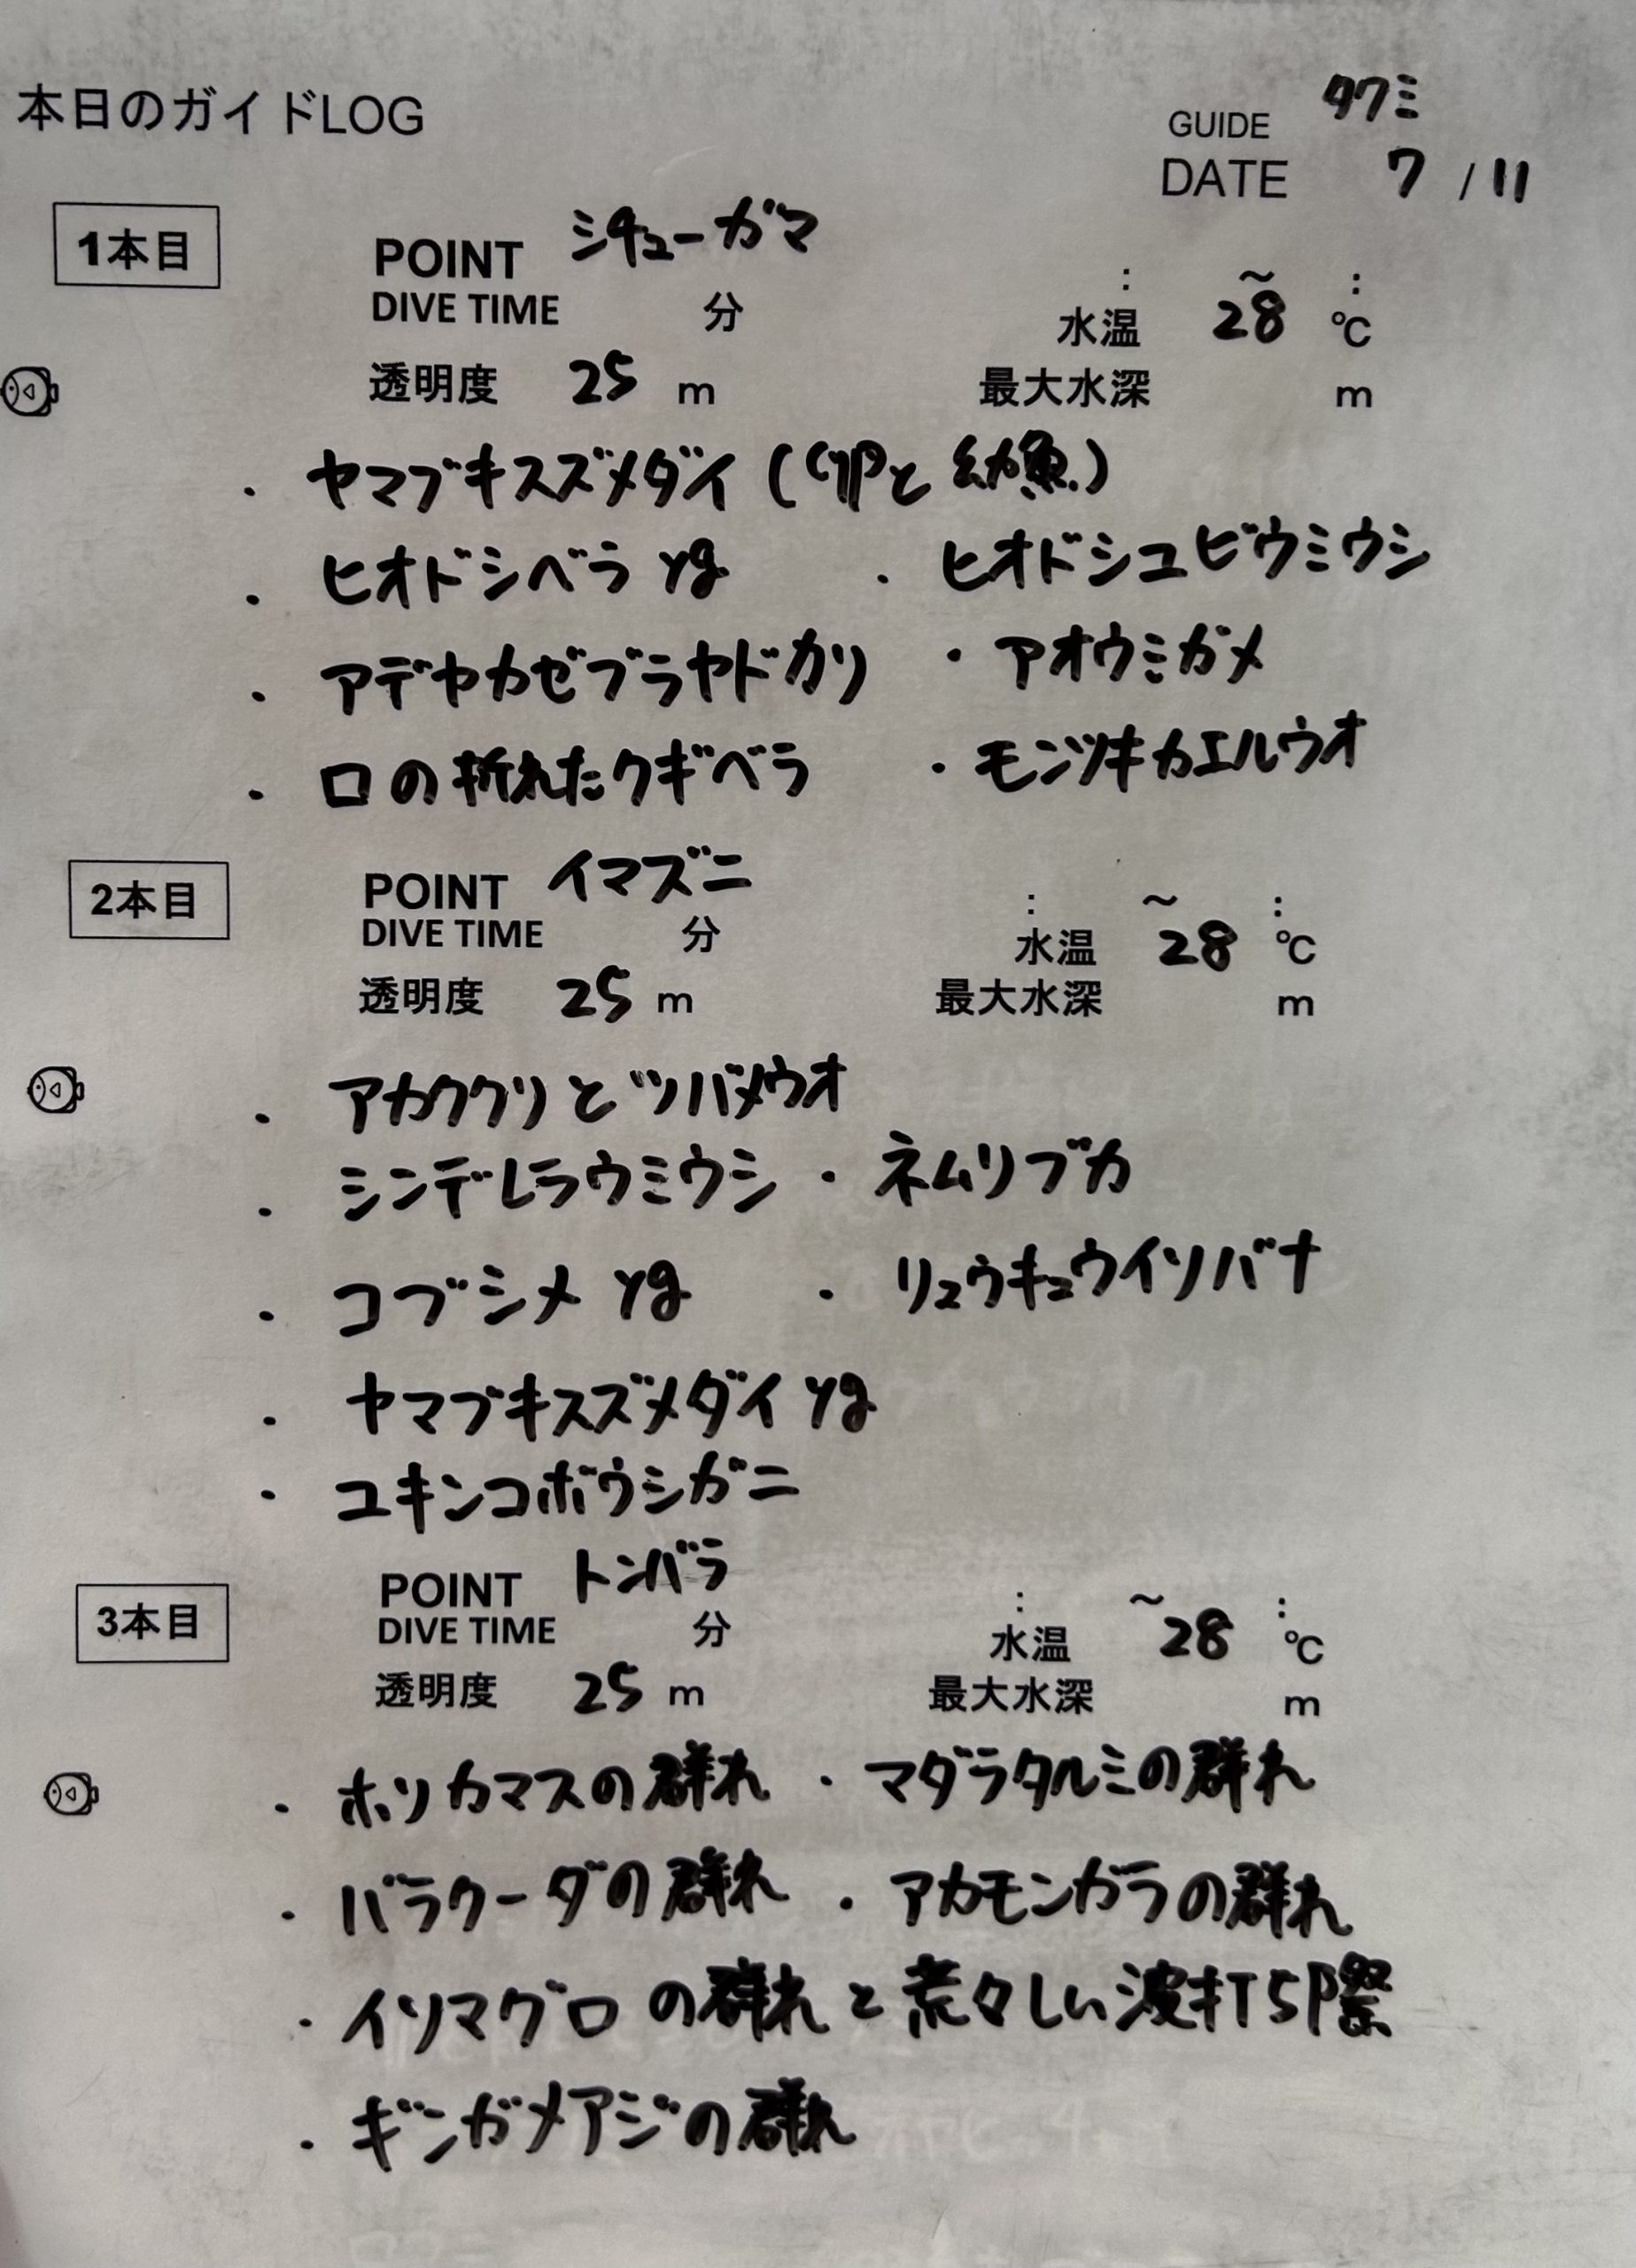 本日のガイドLOG
GUIDE タクミ
DATE 7 / 11
1本目
POINT シチューガマ
: ~ :
DIVE TIME 分 水温 28 ℃
透明度 25 m 最大水深 m
・ヤマブキスズメダイ(卵と幼魚)
・ヒオドシベラ yg ・ヒオドシユビウミウシ
・アデヤカゼブラヤドカリ ・アオウミガメ
・口の折れたクギベラ ・モンツキカエルウオ
2本目
POINT イマズニ
: ~ :
DIVE TIME 分 水温 28 ℃
透明度 25 m 最大水深 m
・アカククリとツバメウオ
・シンデレラウミウシ ・ネムリブカ
・コブシメ yg ・リュウキュウイソバナ
・ヤマブキスズメダイ yg
・ユキンコボウシガニ
3本目
POINT トンバラ
: ~ :
DIVE TIME 分 水温 28 ℃
透明度 25 m 最大水深 m
・ホソカマスの群れ ・マダラタルミの群れ
・バラクーダの群れ ・アカモンガラの群れ
・イソマグロの群れと荒々しい波打ち際
・ギンガメアジの群れ